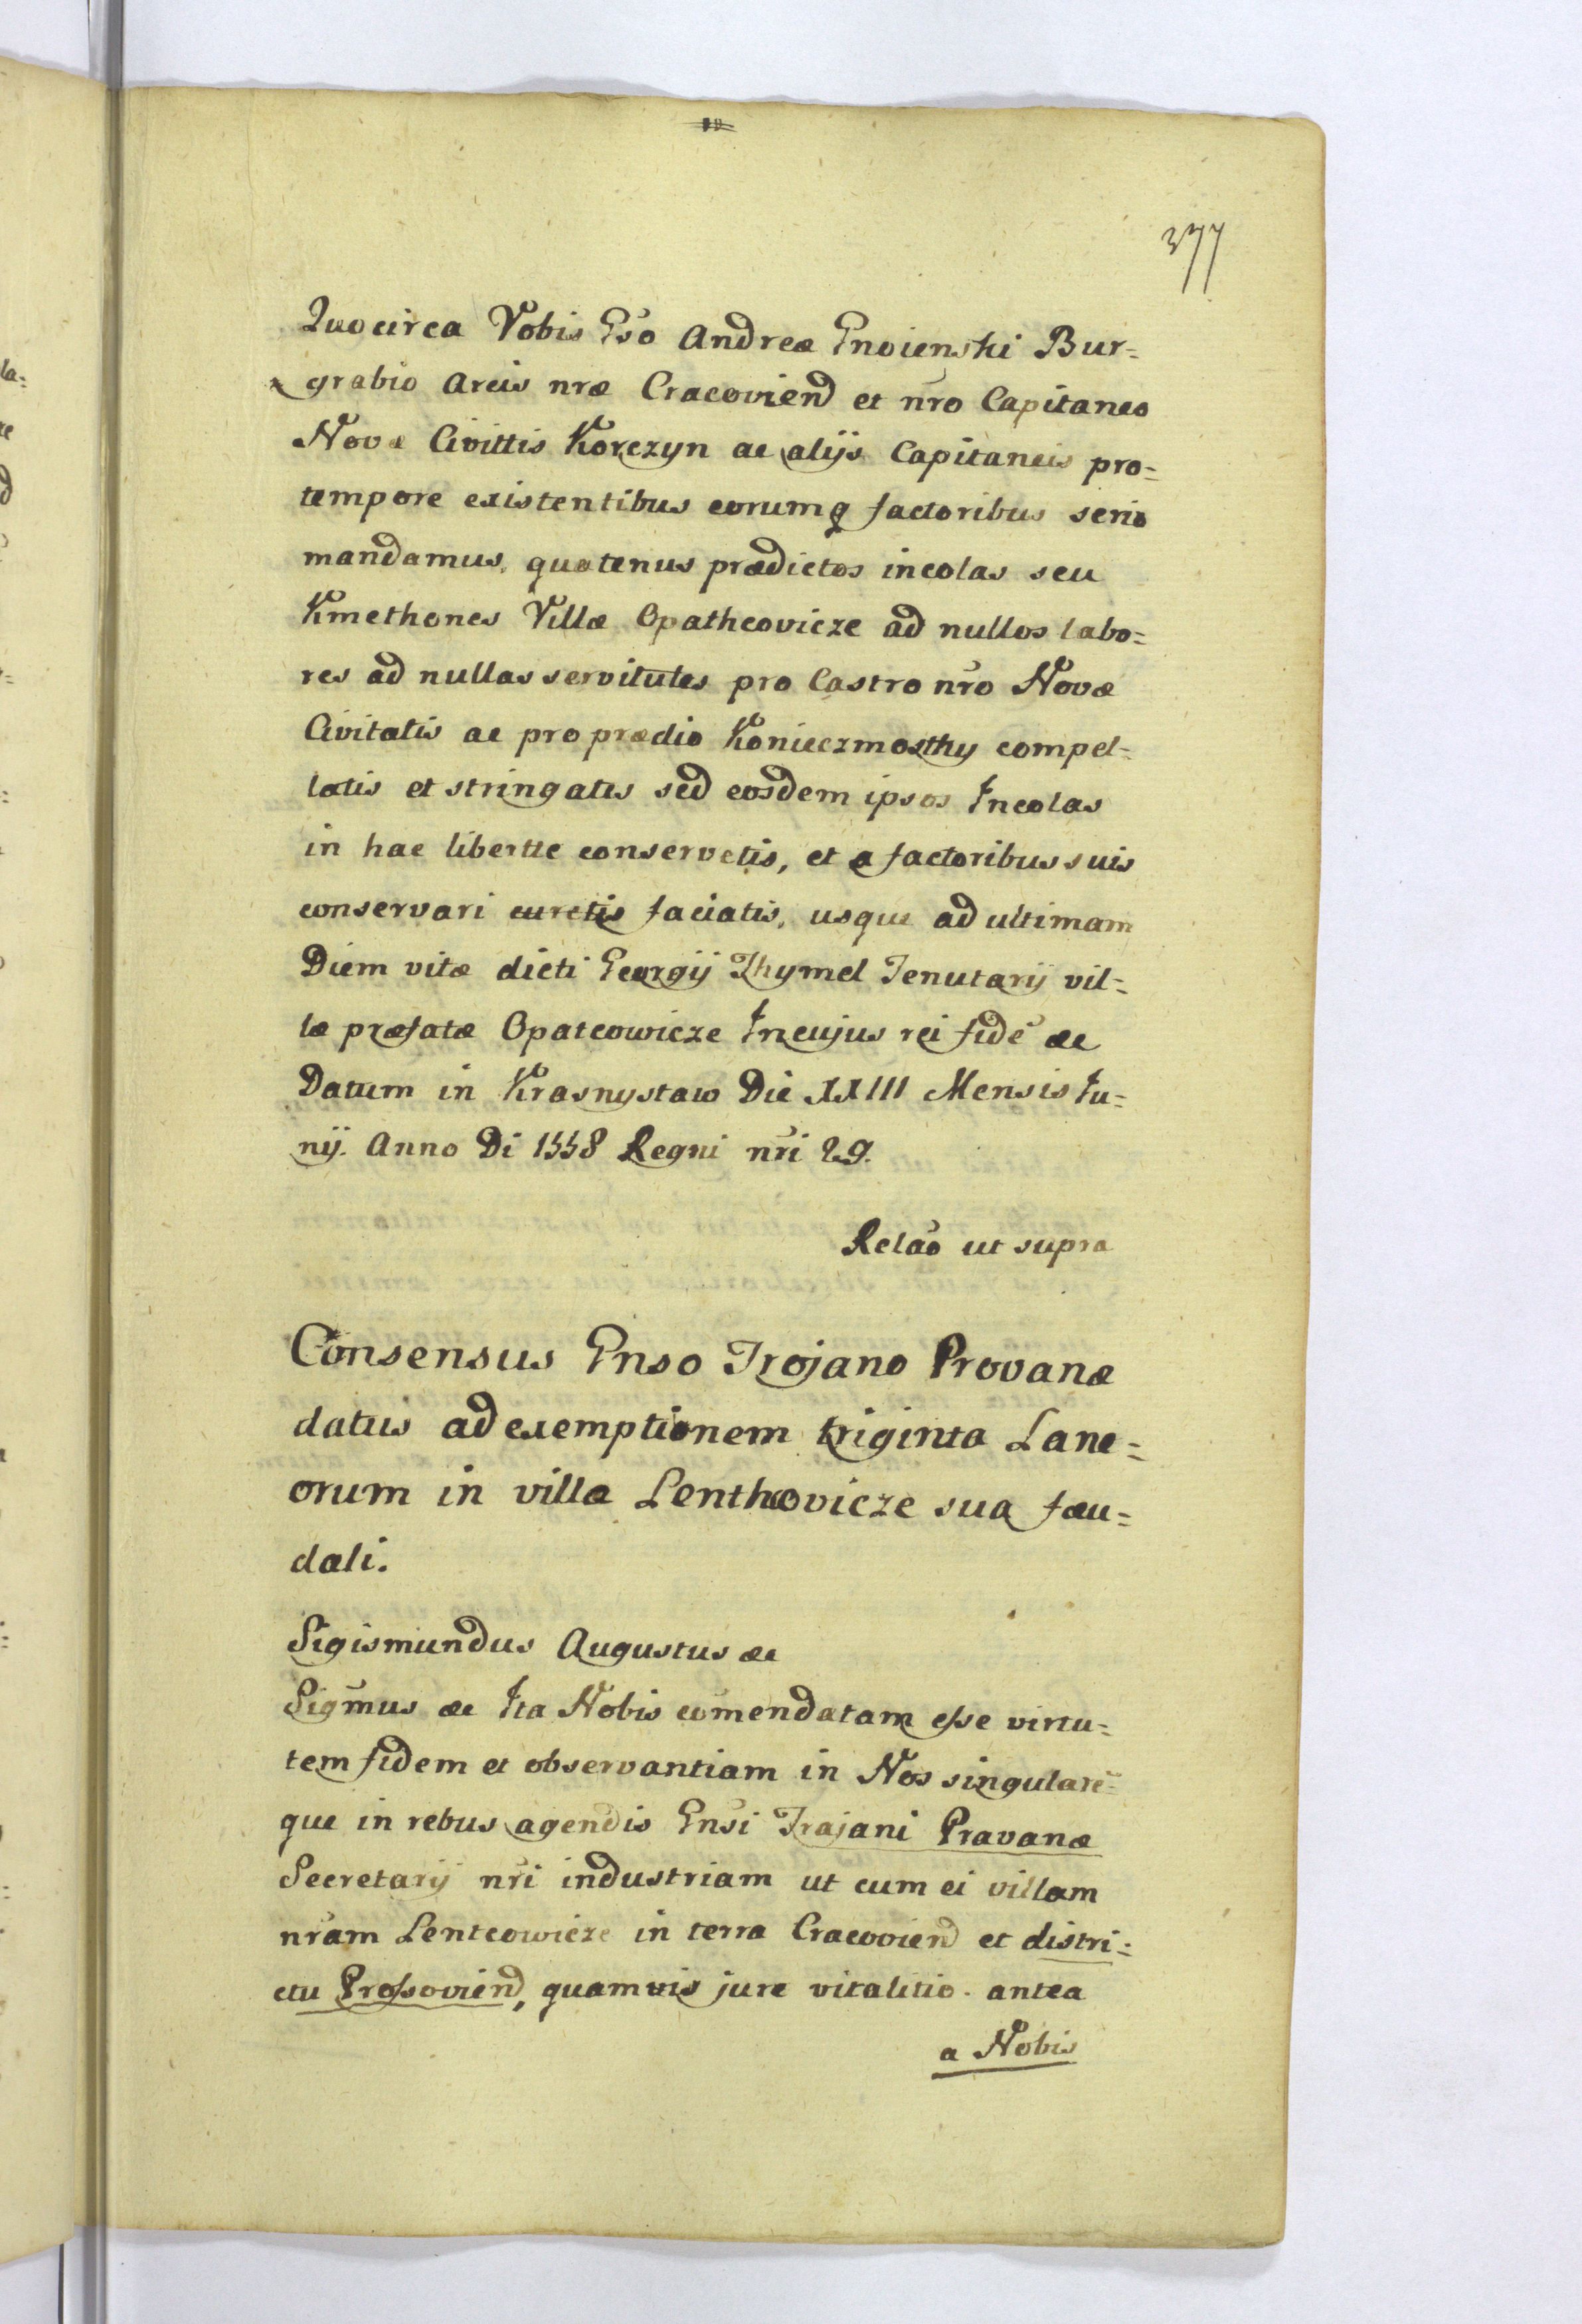 377
Quocirca Vobis Gso Andreæ Gnoienski Bur=
grabio Arcis nræ Cracovien et nro Capitaneo
Novæ Civittis Korczyn ac alijs Capitaneis pro=
tempore existentibus eorumq factoribus serio
mandamus, quatenus prædictos incolas seu
Kmethones Villæ Opathcovicze ad nullos labo=
res ad nullas servitutes pro Castro nro Novæ
Civitatis ac pro prædio Konieczmosthy compel=
latis et stringatis sed eosdem ipsos Incolas
in hac libertte conservetis, et a factoribus suis
conservari curetis faciatis, usque ad ultimam
Diem vitæ dicti Georgij Thymel Tenutarij vil=
læ præfatæ Opatcowicze In cujus rei fidē &c
Datum in Krasnystaw Die XXIII Mensis Iu=
nij. Anno Di 1558 Regni nri 29.
Relāo ut supra
Consensus Gnso Trojano Provanæ
datus ad exemptionem triginta Lane=
orum in villa Lenthcovicze sua fæu=
dali.
Sigismundus Augustus &c
Sigmus &c Ita Nobis comendatam esse virtu=
tem fidem et observantiam in Nos singularē=
que in rebus agendis Gnsi Trajani Pravanæ
Secretarij nri industriam ut cum ei villam
nram Lentcowicze in terra Cracovien et distri=
ctu Prossovien, quamvis jure vitalitio antea
a Nobis